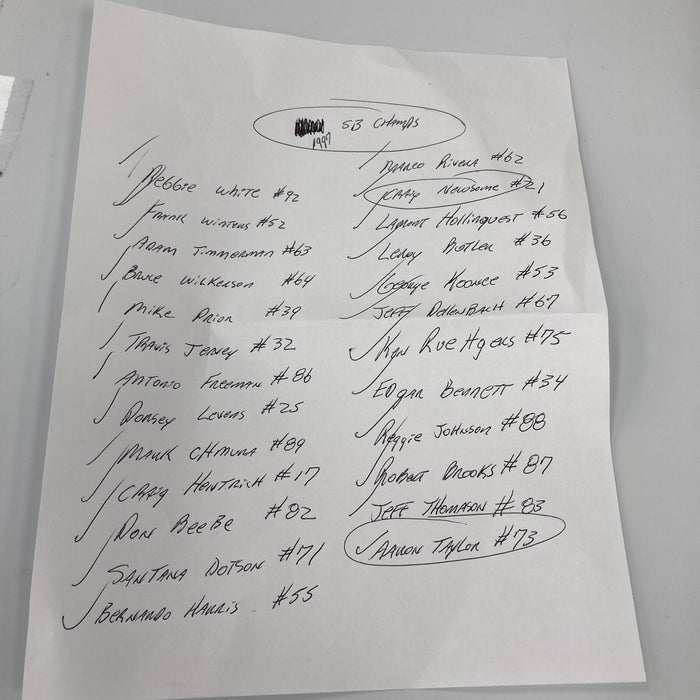 SB CHAMPS
1997
Reggie White #92
Frank Winters #52
Adam Timmerman #63
Bruce Wilkerson #64
Mike Prior #39
Travis Jervey #32
Antonio Freeman #86
Dorsey Levens #25
Mark Chmura #89
Craig Hentrich #17
Don BeeBe #82
Santana Dotson #71
Bernardo Harris. #55
Marco Rivera #62
Craig Newsome #21
Lamont Hollinquest #56
Leroy Butler #36
George Koonce #53
Jeff Dellenbach #67
Ken Ruettgers #75
Edgar Bennett #34
Reggie Johnson #88
Robert Brooks #87
Jeff Thomason #83
Aaron Taylor #73